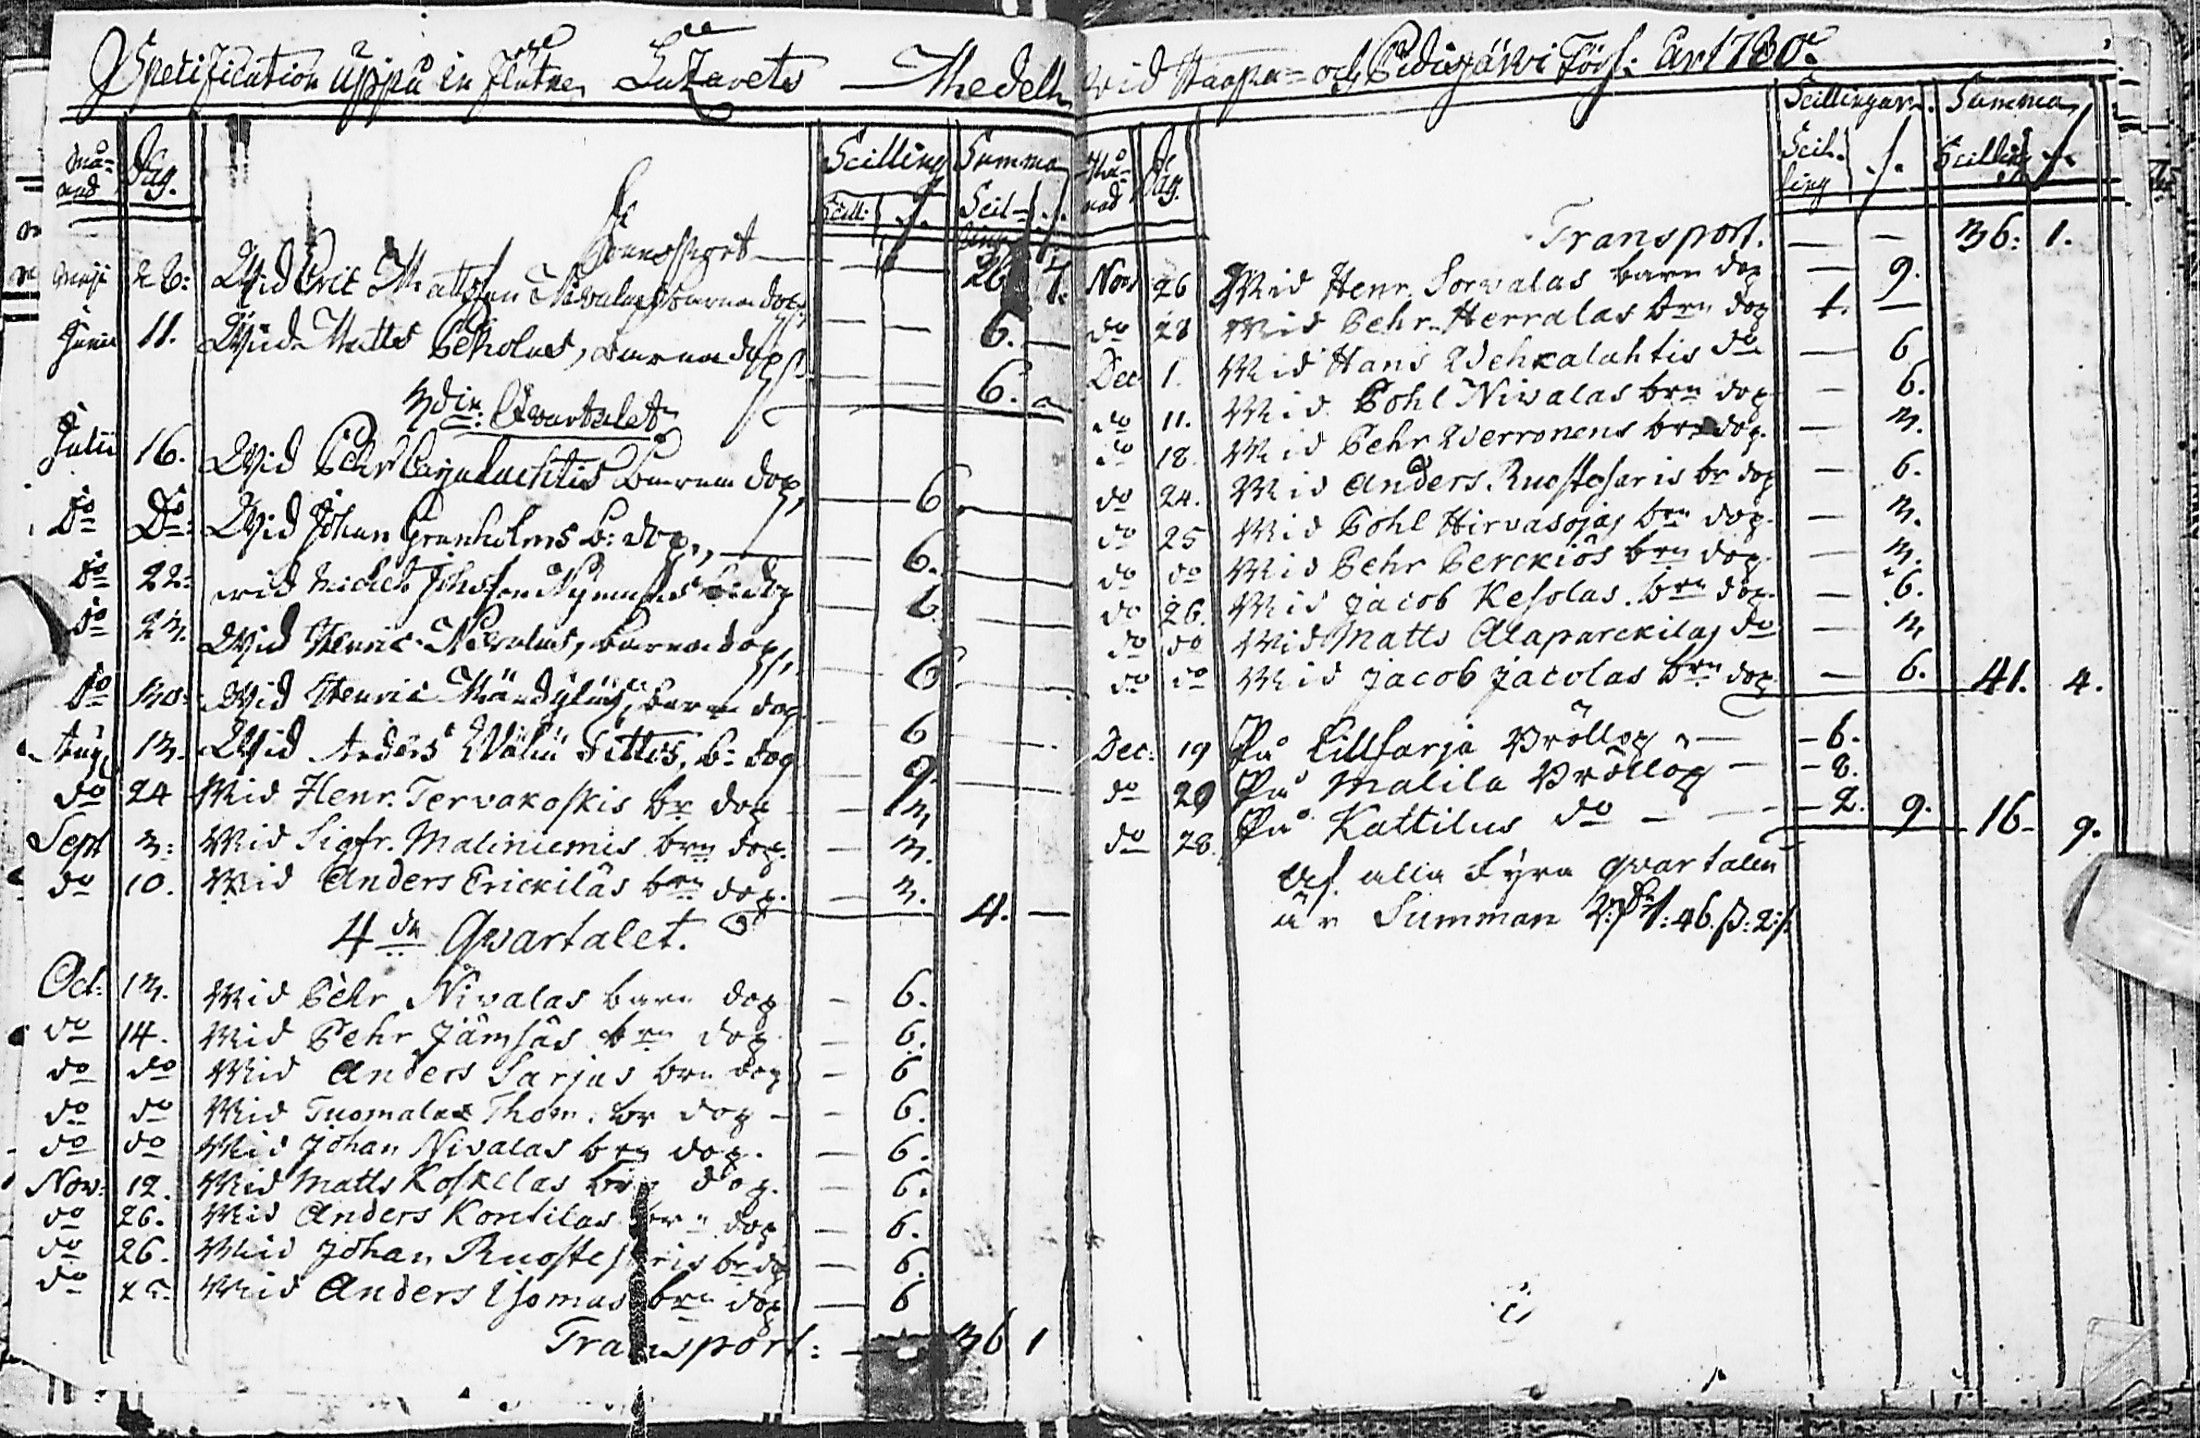 Specification uppå in flutne Lazarets Medell
Månad Dag. Scilling Summa
Scill: Scilling
Transport 26
Maji 28: Wid Eric Mattsson Nivalas barnedop
Junii 11. Wid Matts Pekolas, barnedop 6.
6.
3die Qvartalet
Julii 16. Wid Pehr barnedop 6
Do Do: Wid Johan Granholms b: dop, 6.
Do 22: wid Michel Johsson b: dop 6.
Do 23. Wid Henric Nivalas, barnedop 6
Do 30: Wid Henric barnedop 6
Aug 13. Wid Anders b: dop 9
do 24 Wid Henr. Tervakoskis br dop 3
Sept 3: Wid Sigfr. Maliniemis brn dop. 3.
do 10. Wid Anders Erickiläs brn dop. 3. 4.
4de Qvartalet.
Oct: 13. Wid Pehr Nivalas barn dop 6.
do 14. Wid Pehr Jämsäs brn dop 6.
do do Wid Anders Sarjas brn dop 6
do do Wid Tuomalas Thom. br dop 6.
do do Wid Johan Nivalas brn dop. 6.
Nov: 12. Wid Matts Koskelas brn dop. 6.
do 26. Wid Anders Kontilas brn dop 6.
do 26. Wid Johan Ruostesaris br dop 6.
do Wid Anders Isomas brn dop 6
Transport: 36 1
wid Haapa- och Pidisjärvi Förs: år 1780.
Månad Dag. Scillingar. Summa
Scilling Scilling
Transport. 36: 1.
Nov 26 Wid Henr. Sorvalas barn dop 9.
do 28 Wid Pehr Herralas brn dop 1.
Dec 1. Wid Hans Wehkalahtis do 6
do 11. Wid Pohl Nivalas brn dop 6.
do 18. Wid Pehr Werronens brn dop. 3.
do 24. Wid Anders Ruostesaris br dop 6.
do 25 Wid Pohl Hirvasojas brn dop. 3.
do do Wid Pehr Perckiös brn dop. 3.
do 26. Wid Jacob Kesolas brn dop. 6.
do do Wid Matts Alaparckilas do 3
do do Wid Jacob Jacolas brn dop 6. 41. 4.
Dec: 19 På Lillsarja Bröllop 6.
do 29 På Malila Bröllop 8.
do 28. På Kattilus do 2. 9. 16. 9.
Af alla fyra qvartalen
är Summan 1: 46. ß: 2: